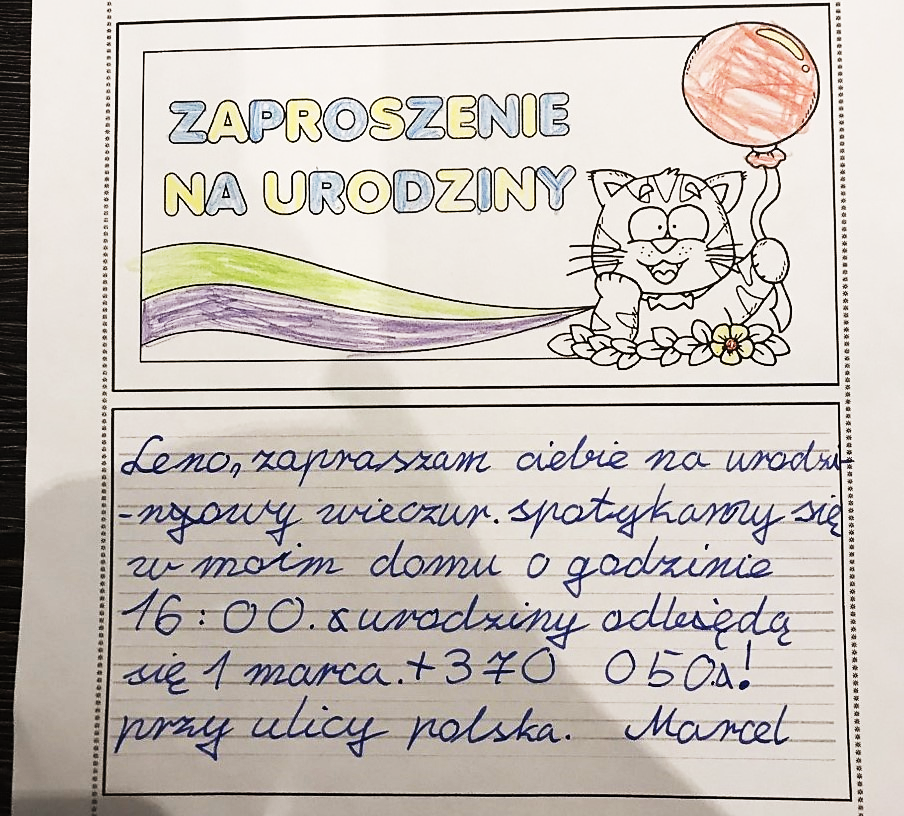 ZAPROSZENIE
NA URODZINY
Leno, zapraszam ciebie na urodzi-
-nyowy wieczur. spotykamy się
w moim domu o godzinie
16:00. urodziny odbsędą
się 1 marca. +370 050
przy ulicy polska. Marcel